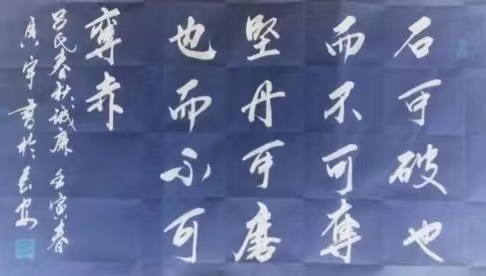 石可破也
而不可奪
堅丹可磨
也而不可
奪赤
呂氏春秋誠廉 壬寅春
宇書於長安